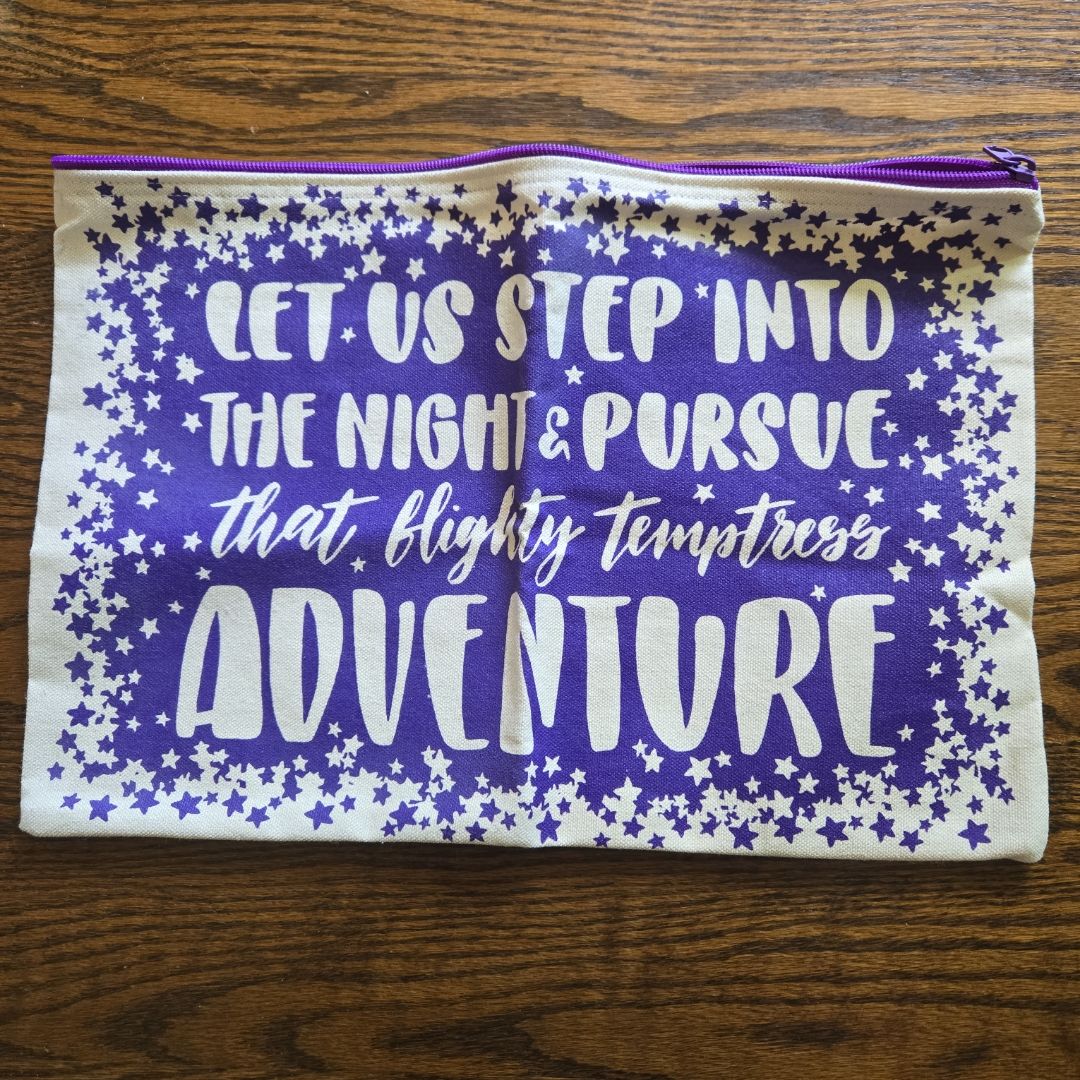 LET US STEP INTO
THE NIGHT & PURSUE
that flighty temptress
ADVENTURE